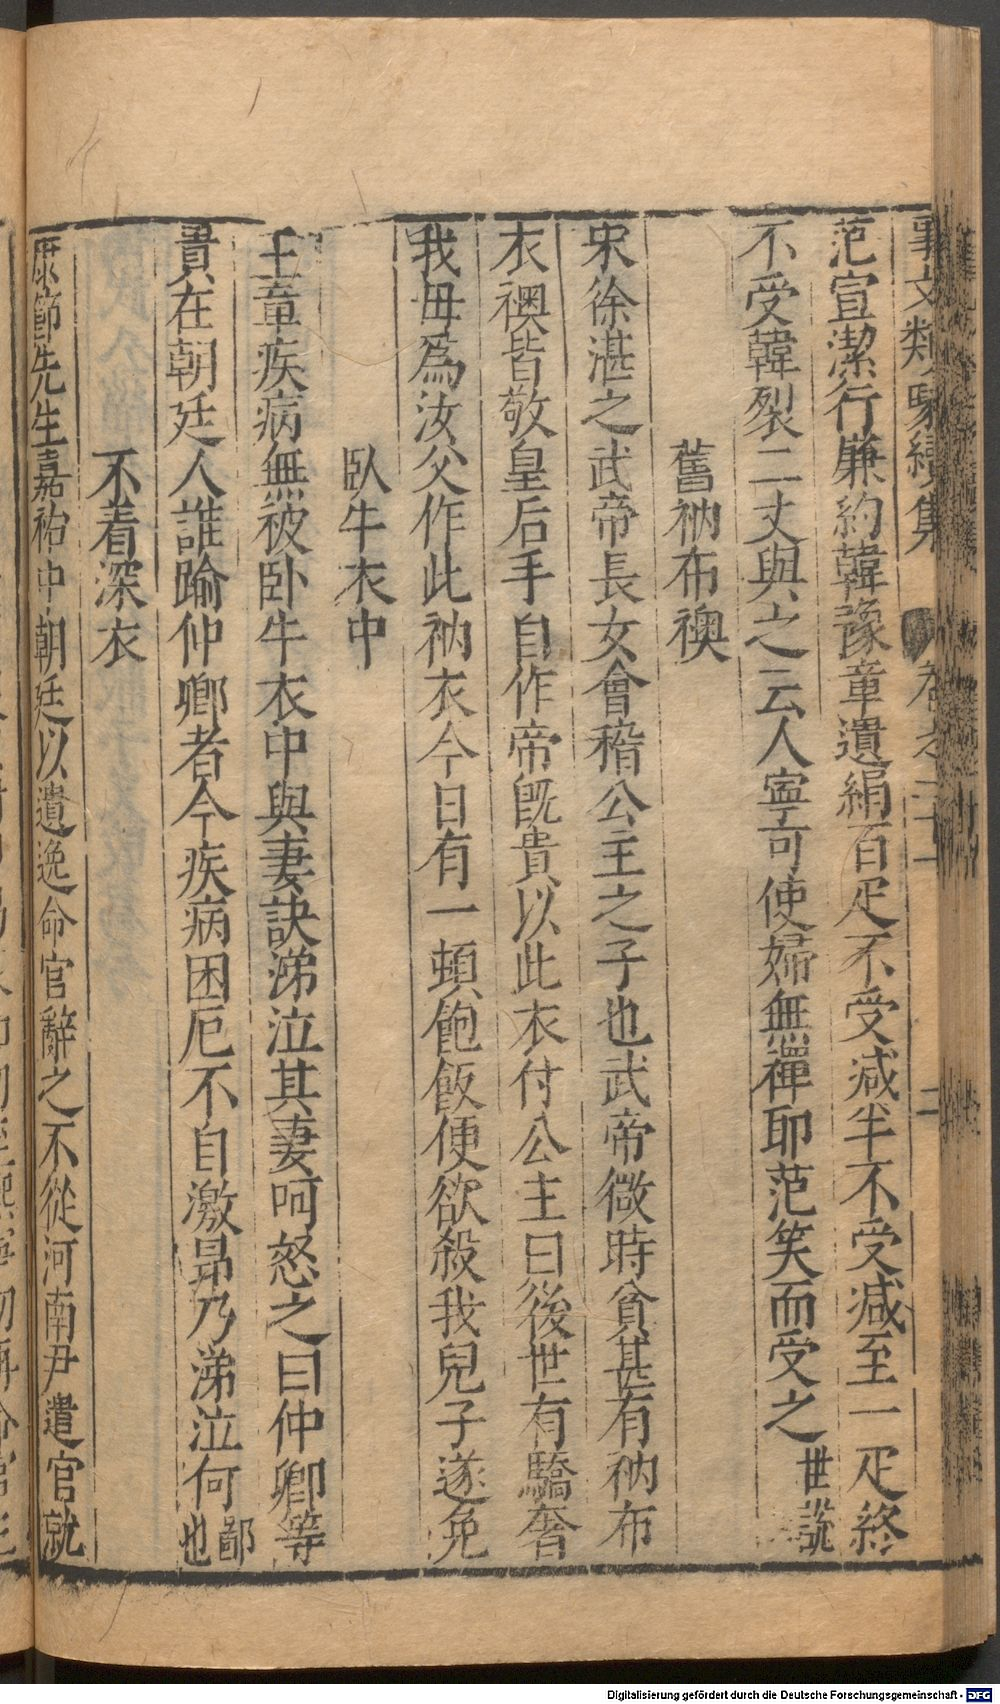 事文類聚續集 卷之二十一 二
范宣潔行廉約韓豫章遺絹百疋不受减半不受减至一疋終
不受韓裂二丈與之云人寧可使婦無襌耶范笑而受之世說
舊衲布襖
宋徐湛之武帝長女會稽公主之子也武帝微時貧甚有衲布
衣襖皆敬皇后手自作帝旣貴以此衣付公主曰後世有驕奢
我母爲汝父作此衲衣今日有一頓飽飯便欲殺我兒子遂免
臥牛衣中
王章疾病無被卧牛衣中與妻訣涕泣其妻呵怒之曰仲卿等
貴在朝廷人誰踰仲卿者今疾病困厄不自激昻乃涕泣何鄙也
不着深衣
康節先生嘉祐中朝廷以遺逸命官辭之不從河南尹遣官就
Digitalisierung gefördert durch die Deutsche Forschungsgemeinschaft - DFG